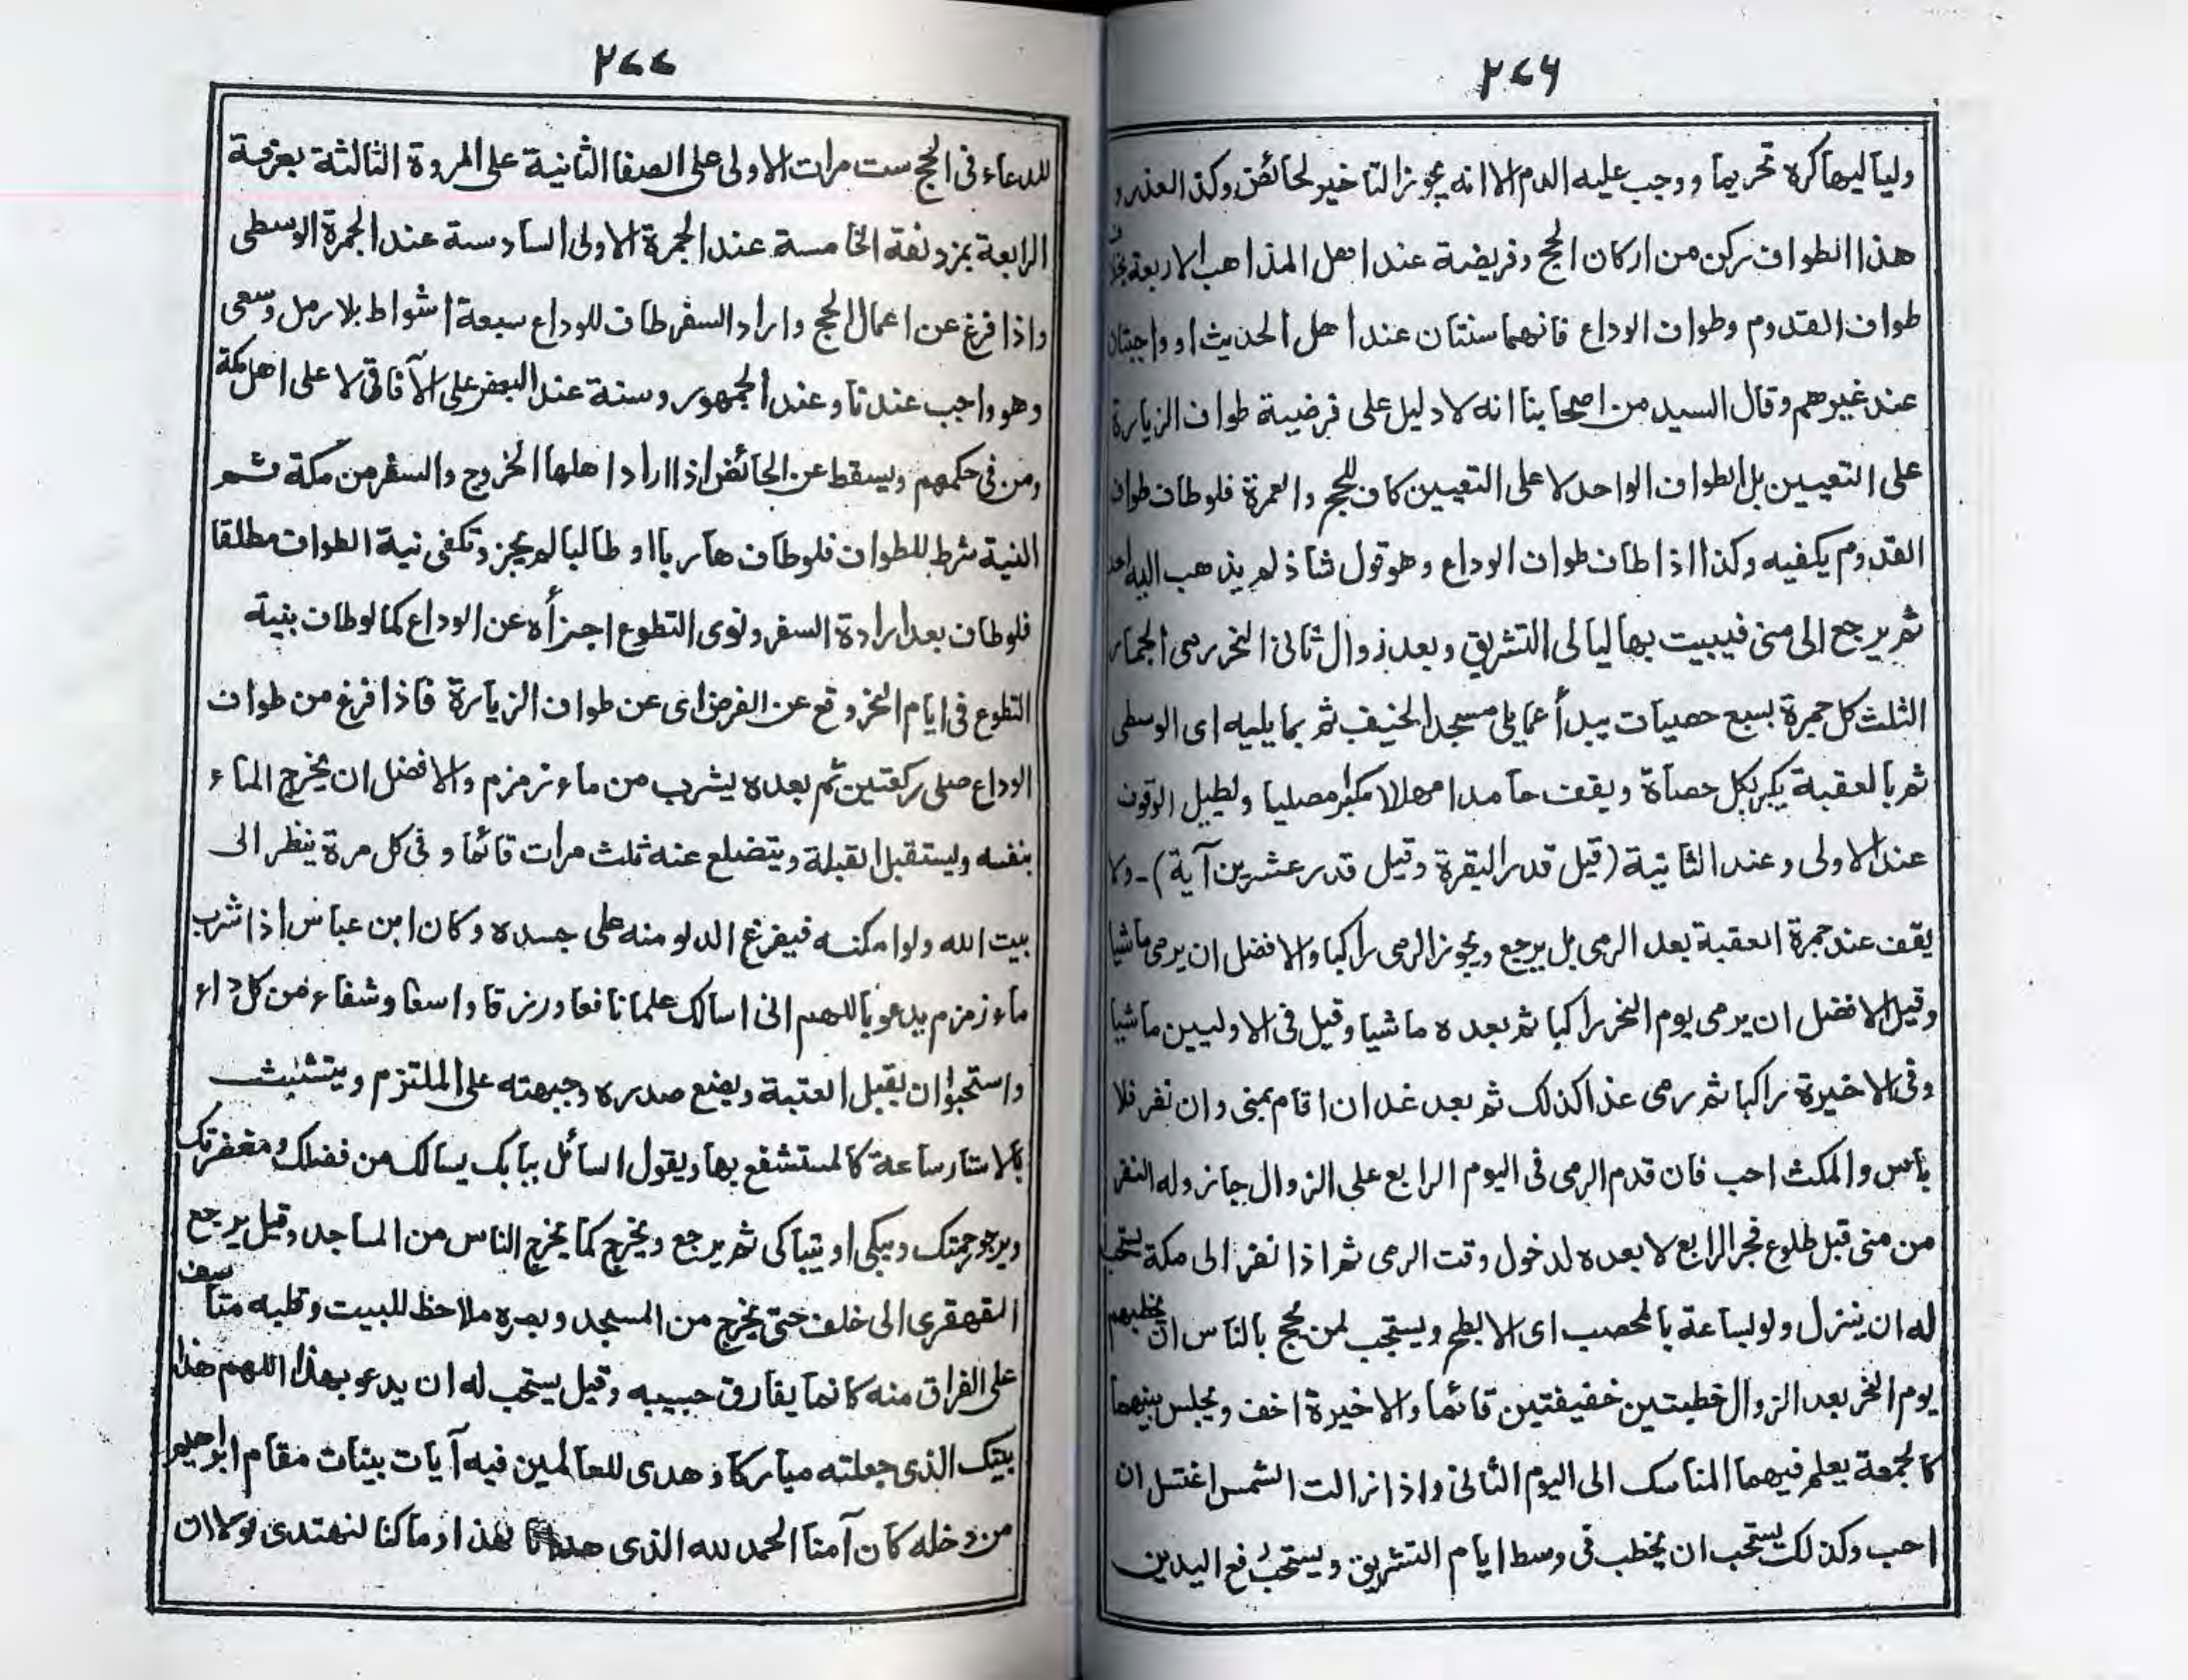 ٢٧٦
ولياليها كره تحريما ووجب عليه الدم الا انه يجوز التاخير لحائض وكذا لعذر و
هذا الطواف ركن من اركان الحج وفريضة عند اهل المذاهب الاربعة بخلاف
طواف القدوم وطواف الوداع فانهما سنتان عند اهل الحديث او واجبتان
عند غيرهم وقال السيد من اصحابنا انه لا دليل على فرضية طواف الزيارة
على التعيين بل الطواف الواحد لا على التعيين كاف للحج والعمرة فلو طاف طواف
القدوم يكفيه وكذا اذا طاف طواف الوداع وهو قول شاذ لم يذهب اليه احد
ثم يرجع الى منى فيبيت بها ليالى التشريق وبعد زوال ثانى النحر رمى الجمار
الثلث كل جمرة بسبع حصيات يبدأ بما يلى مسجد الخيف ثم بما يليه اى الوسطى
ثم بالعقبة يكبر لكل حصاة ويقف حامدا مهللا مكبرا مصليا ويطيل الوقوف
عند الاولى وعند الثانية (قيل قدر البقرة وقيل قدر عشرين آية) - ولا
يقف عند جمرة العقبة بعد الرمى بل يرجع ويجوز الرمى راكبا والافضل ان يرمى ماشيا
وقيل الافضل ان يرمى يوم النحر راكبا ثم بعده ماشيا وقيل فى الاوليين ماشيا
وفى الاخيرة راكبا ثم رمى غدا كذلك ثم بعد غد ان اقام بمنى وان نفر فلا
بأس والمكث احب فان قدم الرمى فى اليوم الرابع على الزوال جاز وله النفر
من منى قبل طلوع فجر الرابع لا بعده لدخول وقت الرمى ثم اذا نفر الى مكة يستحب
له ان ينزل ولو بساعة بالمحصب اى الابطح ويستحب لمن حج بالناس ان يخطبهم
يوم النحر بعد الزوال خطبتين خفيفتين قائما والاخيرة اخف ويجلس بينهما
كالجمعة يعلم فيهما المناسك الى اليوم الثانى واذا زالت الشمس اغتسل ان
احب وكذلك يستحب ان يخطب فى وسط ايام التشريق ويستحب رفع اليدين
٢٧٧
للدعاء فى الحج ست مرات الاولى على الصفا الثانية على المروة الثالثة بعرفة
الرابعة بمزدلفة الخامسة عند الجمرة الاولى السادسة عند الجمرة الوسطى
واذا فرغ عن اعمال الحج واراد السفر طاف للوداع سبعة اشواط بلا رمل وسعى
وهو واجب عندنا وعند الجمهور وسنة عند البعض على الآفاقى لا على اهل مكة
ومن فى حكمهم ويسقط عن الحائض اذا اراد اهلها الخروج والسفر من مكة ثم
النية شرط للطواف فلو طاف هاربا او طالبا لم يجز وتكفى نية الطواف مطلقا
فلو طاف بعد ارادة السفر ونوى التطوع اجزأه عن الوداع كما لو طاف بنية
التطوع فى ايام النحر وقع عن الفرض اى عن طواف الزيارة فاذا فرغ من طواف
الوداع صلى ركعتين ثم بعده يشرب من ماء زمزم والافضل ان يخرج الماء
بنفسه وليستقبل القبلة ويتضلع عنه ثلث مرات قائما وفى كل مرة ينظر الى
بيت الله ولو امكنه فيفرغ الدلو منه على جسده وكان ابن عباس اذا شرب
ماء زمزم يدعو باللهم انى اسالك علما نافعا ورزقا واسعا وشفاء من كل داء
واستحبوا ان يقبل العتبة ويضع صدره وجبهته على الملتزم ويتشبث
بالاستار ساعة كالمستشفع بها ويقول السائل ببابك يسالك من فضلك ومغفرتك
ويرجو رحمتك ويبكى او يتباكى ثم يرجع ويخرج كما يخرج الناس من المساجد وقيل يرجع
القهقرى الى خلف حتى يخرج من المسجد وبصره ملاحظ للبيت وقلبه متأسف
على الفراق منه كانما يفارق حبيبه وقيل يستحب له ان يدعو بهذا اللهم هذا
بيتك الذى جعلته مباركا وهدى للعالمين فيه آيات بينات مقام ابراهيم
من دخله كان آمنا الحمد لله الذى هدانا لهذا وما كنا لنهتدى لولا ان